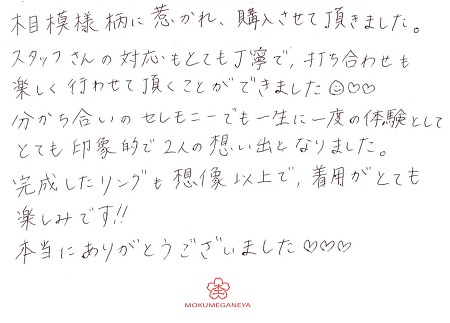 相模様柄に惹かれ、購入させて頂きました。
スタッフさんの対応もとても丁寧で、打ち合わせも
楽しく行わせて頂くことができました☺♡♡
分かち合いのセレモニーでも一生に一度の体験として
とても印象的で2人の想い出となりました。
完成したリングも想像以上で、着用がとても
楽しみです!!
本当にありがとうございました♡♡♡
MOKUMEGANEYA